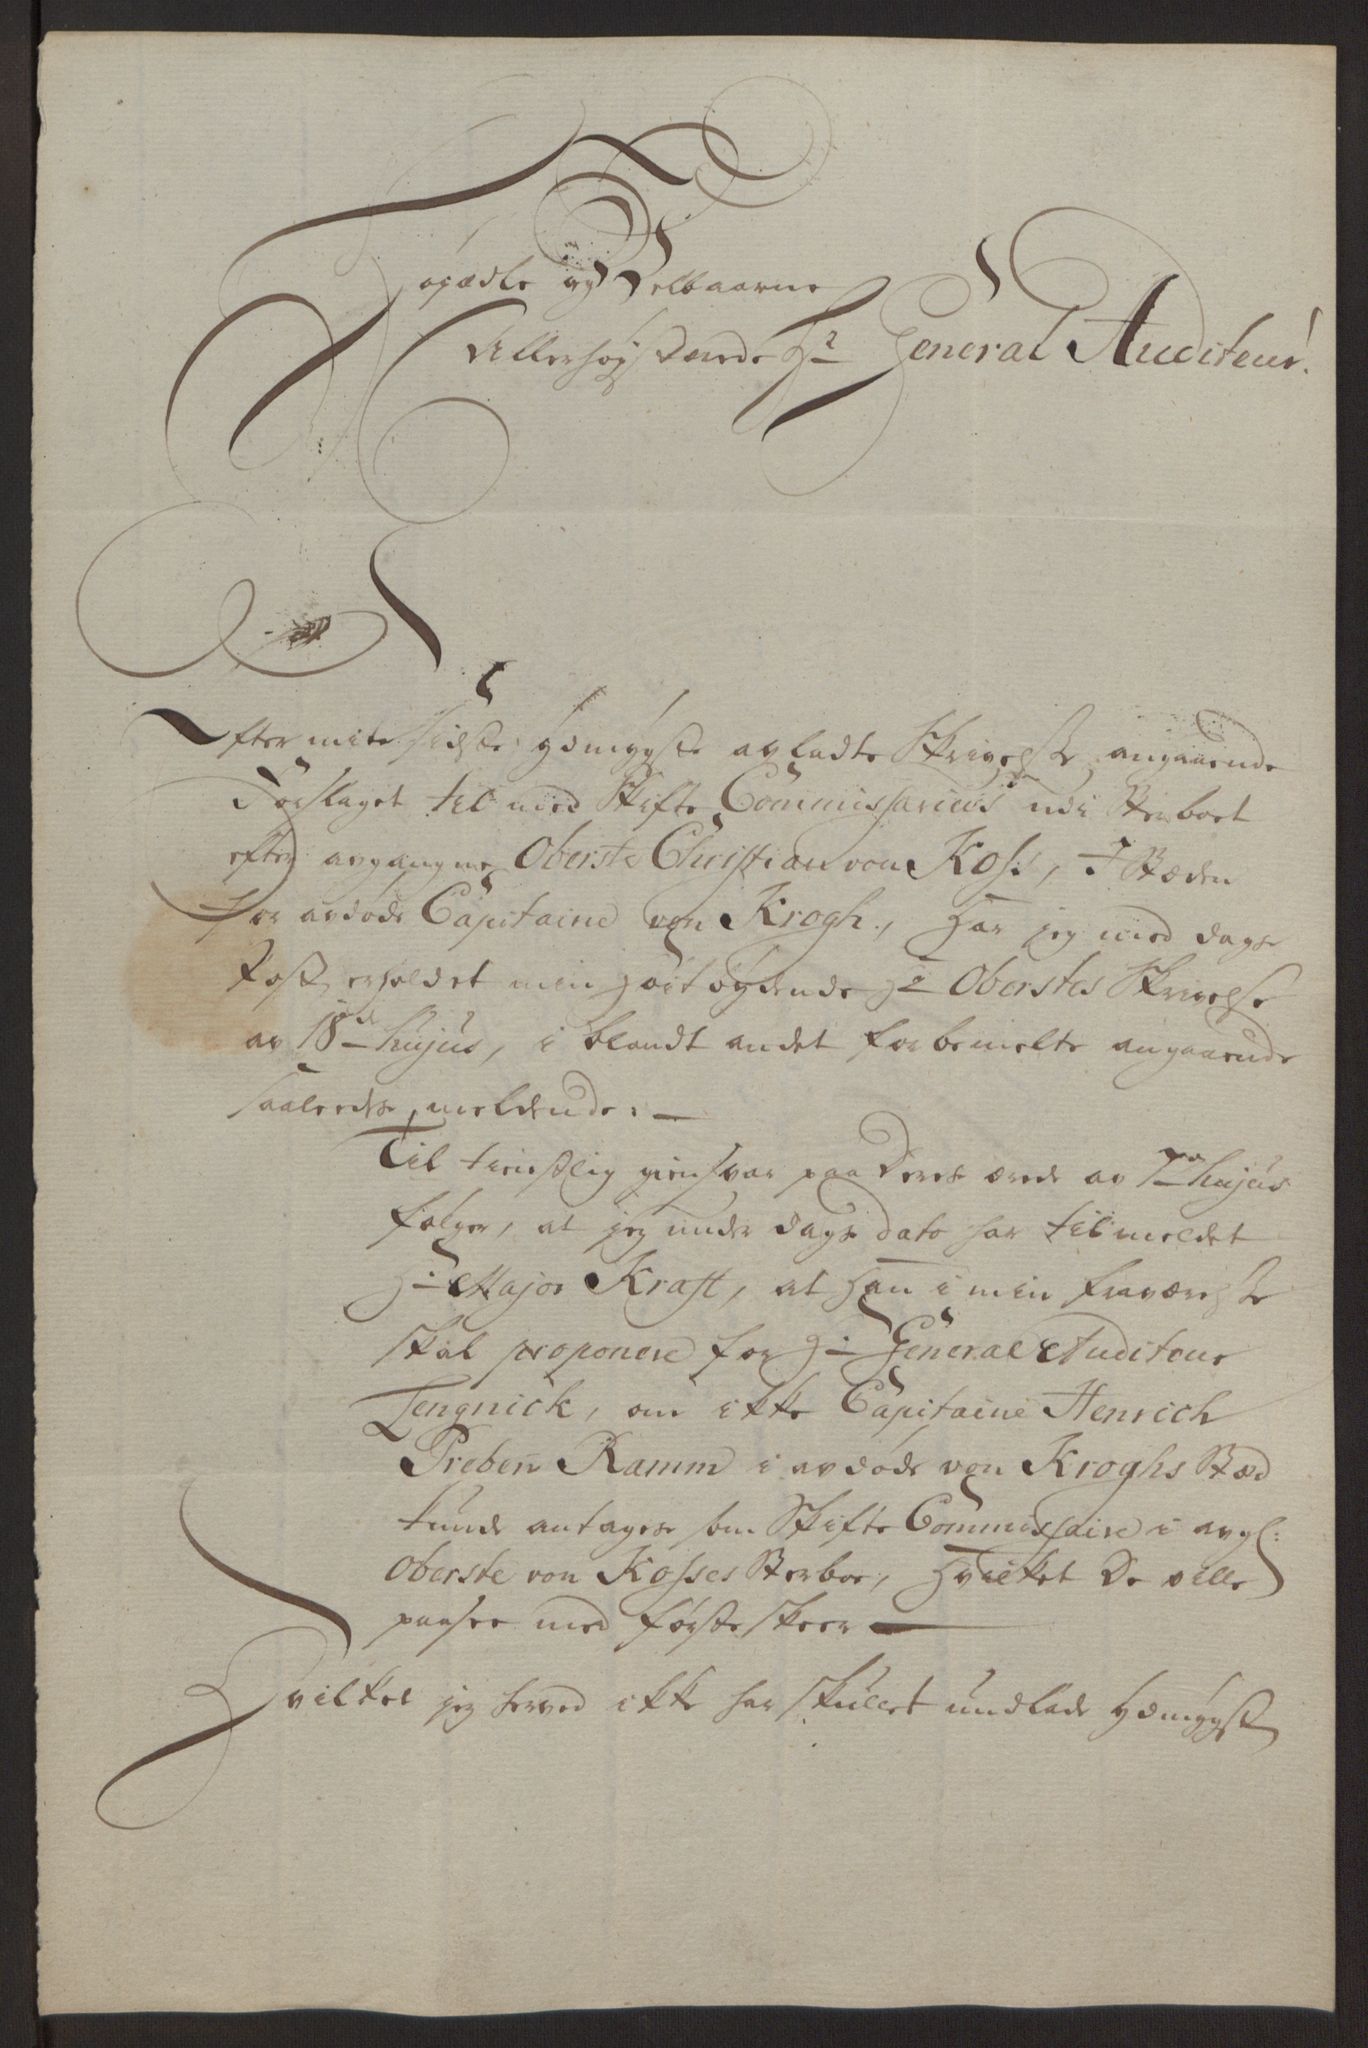 Høyædle og Velbaarne
Allerhøystærede Hr General Auditeur.
Efter mit sidste ydmygste avladte Skrivelse, angaaende
Forslaget til med Skifte Commissarius udi Sterboet
efter avgangne Oberste Christian von Koss, I Stæden
for avdøde Capitaine von Krogh, har jeg med dags
Post erholdet min høitbydende Hr Oberstes Skrivelse
av 18de hujus, i blandt andet forbemelte angaaende
saaledes meldende: —
Til tienstlig giensvar paa Deres ærede av 7de hujus
følger, at jeg under dags dato har tilmeldet
Hr Major Kraft, at Han i min fraværelse
skal proponere for Hr General Auditeur
Zengnick, om ikke Capitaine Henrich
Preben Ramm i avdøde von Kroghs Stæd
kunde antages som Skifte Commissaire i avg:
Oberste von Kosses Sterboe, Hvilket De ville
paasee med første skeer —
Hvilket jeg herved ikke har skullet undlade ydmygst